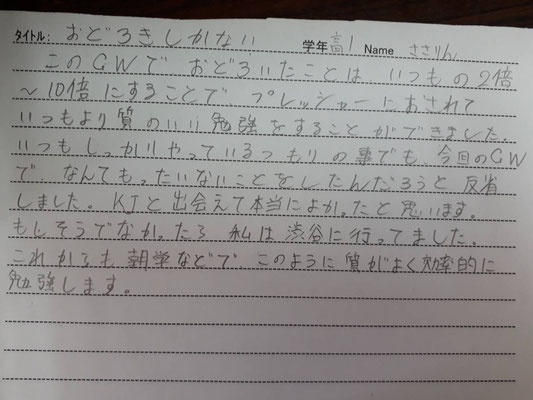 タイトル: おどろきしかない 学年 高1 Name ささりん
このGWで おどろいたことは、いつもの2倍
～10倍にすることで、プレッシャーにおされて
いつもより質のいい勉強をすることができました。
いつもしっかりやっているつもりの事でも、今回のGW
で、なんてもったいないことをしたんだろうと反省
しました。KJと出会えて本当によかったと思います。
もしそうでなかったら 私は渋谷に行ってました。
これからも朝学などで このように質がよく効率的に
勉強します。